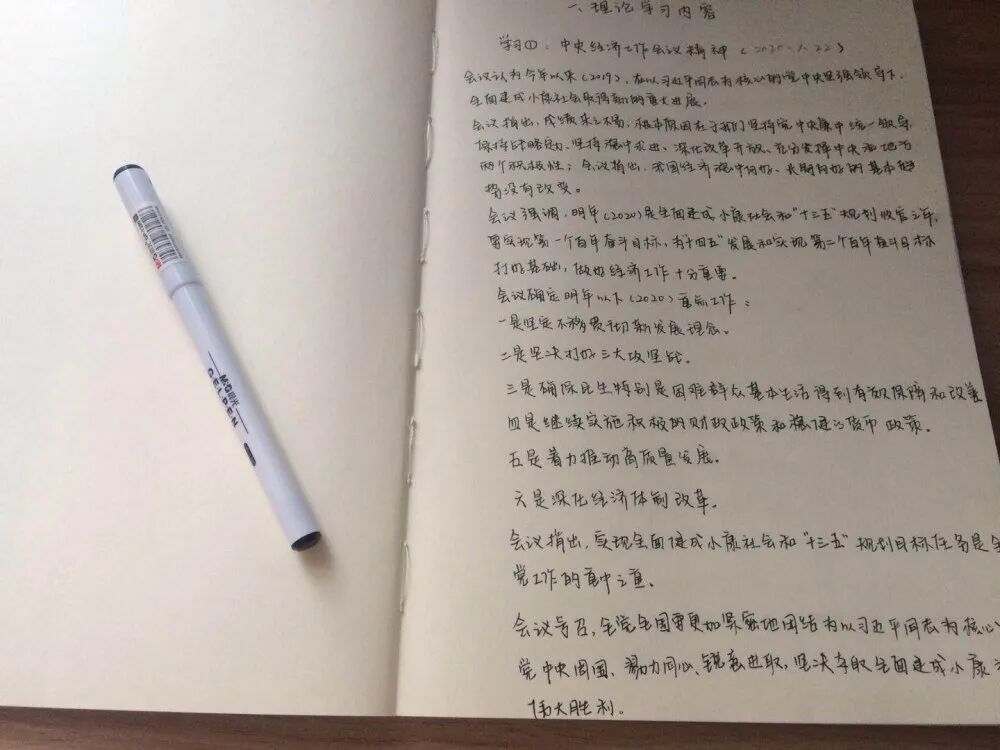 一、理论学习内容
学习①：中央经济工作会议精神（2020.1.22）
会议认为今年以来（2019），在以习近平同志为核心的党中央坚强领导下，
全面建成小康社会取得新的重大进展。
会议指出，成绩来之不易，根本原因在于我们坚持党中央集中统一领导，
保持战略定力、坚持稳中求进、深化改革开放、充分发挥中央和地方
两个积极性；会议指出，我国经济稳中向好、长期向好的基本趋
势没有改变。
会议强调，明年（2020）是全面建成小康社会和“十三五”规划收官之年，
要实现第一个百年奋斗目标，为“十四五”发展和实现第二个百年奋斗目标
打好基础，做好经济工作十分重要。
会议确定明年以下（2020）重点工作：
一是坚定不移贯彻新发展理念。
二是坚决打好三大攻坚战。
三是确保民生特别是困难群众基本生活得到有效保障和改善
四是继续实施积极的财政政策和稳健的货币政策。
五是着力推动高质量发展。
六是深化经济体制改革。
会议指出，实现全面建成小康社会和“十三五”规划目标任务是全
党工作的重中之重。
会议号召，全党全国要更加紧密地团结在以习近平同志为核心
党中央周围、勠力同心、锐意进取，坚决夺取全面建成小康
伟大胜利。
M&G晨光
GELPEN